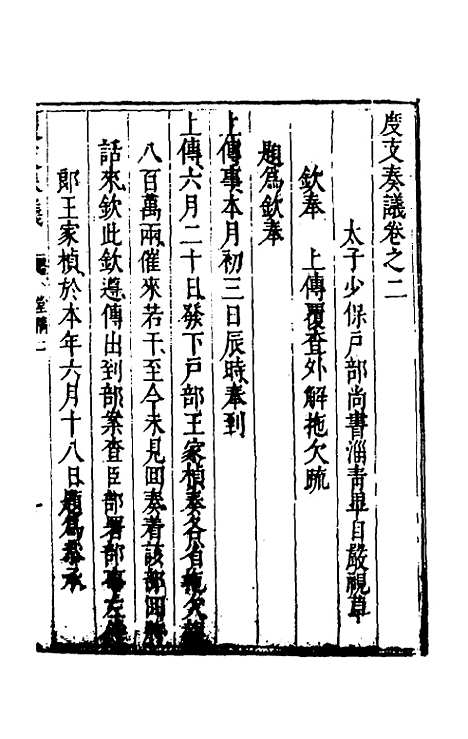 度支奏議卷之二
太子少保戶部尚書淄青畢自嚴視草
欽奉 上傳覆查外解拖欠疏
題為欽奉
上傳事本月初三日辰時奉到
上傳六月二十日發下戶部王家楨奏各省拖欠
八百萬兩催來若干至今未見回奏着該部回將
話來欽此欽遵傳出到部案查臣部署部事左侍
郎王家楨於本年六月十八日題為恭承